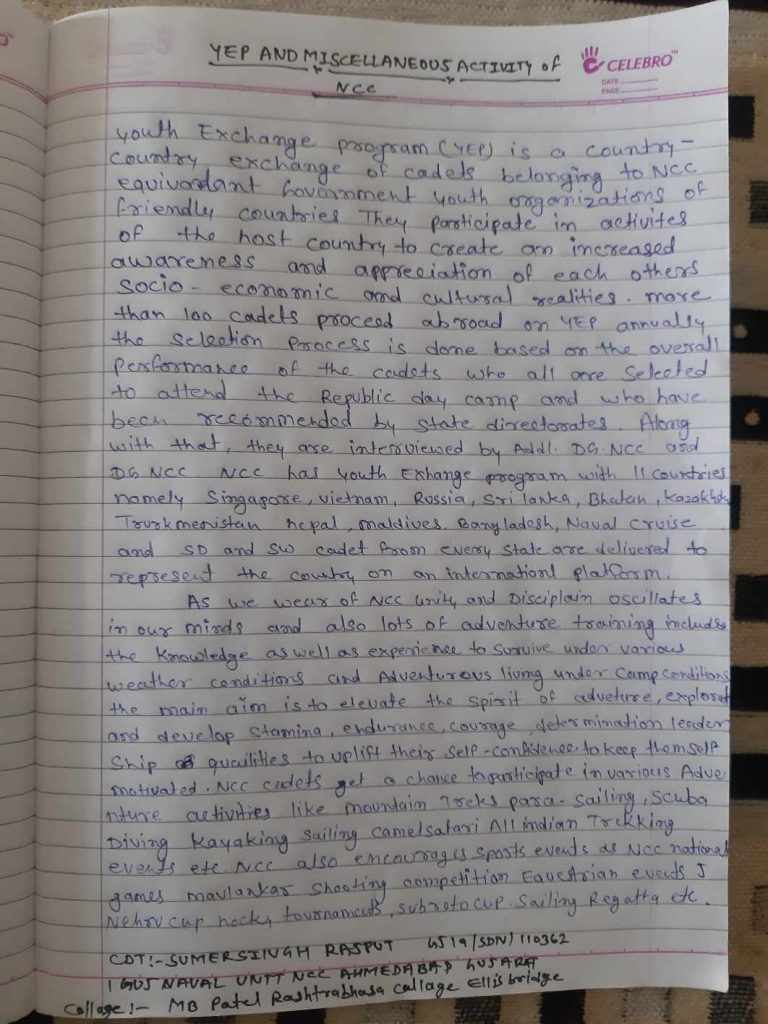 YEP AND MISCELLANEOUS ACTIVITY of
NCC
CELEBRO™
DATE
PAGE
youth Exchange program (YEP) is a country-
country exchange of cadets belonging to NCC
equivordant Government youth organizations of
friendly countries They participate in activites
of the host country to create an increased
awareness and appreciation of each others
socio-economic and cultural realities. more
than 100 cadets proceed abroad on YEP annually
the selection Process is done based on the overall
Performance of the cadets who all are Selected
to attend the Republic day camp and who have
been recommended by state directorates. Along
with that, they are interviewed by Addl. DG. NCC and
DG NCC. NCC has youth Exhange program with 11 countries
namely Singapore, vietnam, Russia, Sri lanka, Bhutan, Kazakhsta
Turkmenistan nepal, maldives, Bangladesh, Naval cruise
and SD and SW cadet from every state are delivered to
represent the country on an internationl platform.
As we wear of NCC unity and Disciplain oscillates
in our minds and also lots of adventure training includes
the Knowledge as well as experience to Survive under various
weather conditions and Adventurous living under Camp conditions
the main aim is to elevate the spirit of adveture, explorat
and develop stamina, endurance, courage, determination leader
Ship quailities to uplift their self-confidence to keep themself
motivated. NCC cadets get a chance to participate in various Adve
nture activities like mountain Treks para-sailing, Scuba
Diving Kayaking sailing camelsafari All indian Trekking
events etc. NCC also encourages sports events as NCC national
games mavlankar Shooting competition Equestrian events J
Nehru cup hocky tournaments, subroto cup. Sailing Regatta etc.
CDT:- SUMERSINGH RAJPUT GJ19/SDN/110362
1 GUJ NAVAL UNIT NCC AHMEDABAD GUJARA
Collage:- MB Patel Rashtrabhasa collage Ellisbridge